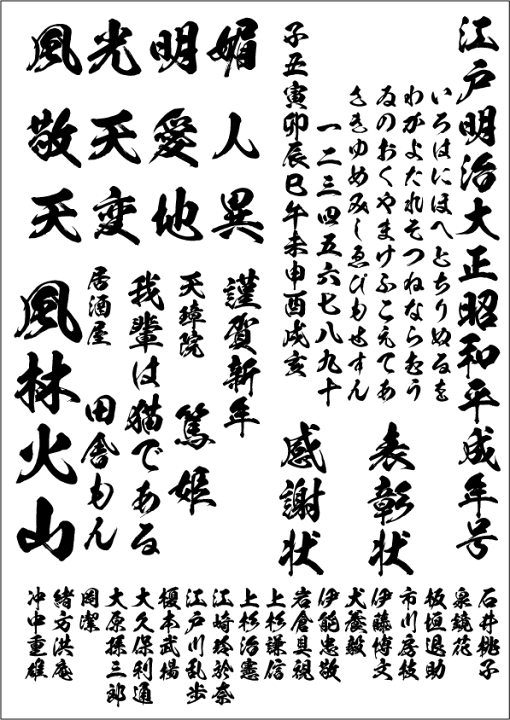 江戸明治大正昭和平成年号
いろはにほへとちりぬるを
わがよたれそつねならむう
ゐのおくやまけふこえてあ
さきゆめみしゑびもせすん
一二三四五六七八九十
子丑寅卯辰巳午未申酉戌亥
表彰状
感謝状
風光明媚
敬天愛人
天変地異
謹賀新年
天璋院 篤姫
我輩は猫である
居酒屋 田舎もん
風林火山
石井桃子
泉鏡花
板垣退助
市川房枝
伊藤博文
犬養毅
伊能忠敬
岩倉具視
上杉謙信
上杉治憲
江崎玲於奈
江戸川乱歩
榎本武揚
大久保利通
大原孫三郎
岡潔
緒方洪庵
沖中重雄